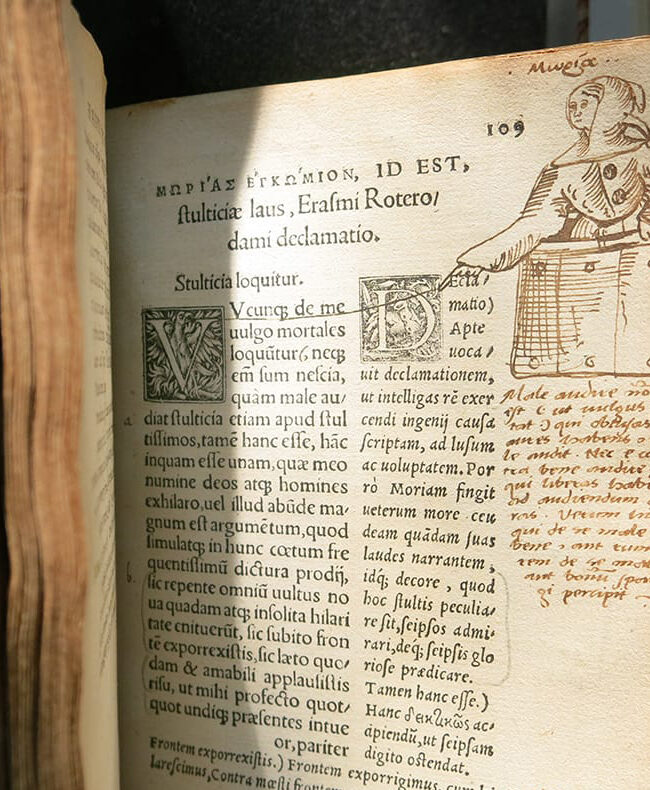 Μωρία
109
ΜΩΡΙ´ΑΣ ΕΓΚΩ´ΜΙΟΝ, ID EST,
ſtulticiæ laus, Eraſmi Rotero/
dami declamatio.
Stulticia loquitur.
VVcunqꝫ de me
uulgo mortales
loquũtur(necqꝫ
em̃ ſum neſcia,
quàm male au/
diat ſtulticia etiam apud ſtul
tiſſimos,tamẽ hanc eſſe, hãc
inquam eſſe unam,quæ meo
numine deos atqꝫ homines
exhilaro,uel illud abũde ma/
gnum eſt argumẽtum,quod
ſimulatqꝫ in hunc cœtum fre
quentiſſimũ dictura prodij,
ſic repente omniũ uultus no
ua quadam atqꝫ inſolita hilari
tate enituerũt, ſic ſubito fron
tẽ exporrexiſtis,ſic læto quo/
dam & amabili applauſiſtis
riſu, ut mihi profecto quot/
quot undiqꝫ præſentes intue
or,pariter
DEcla/
matio)
Apte
uoca/
uit declamationem,
ut intelligas rẽ exer
cendi ingenij cauſa
ſcriptam, ad luſum
ac uoluptatem. Por
rò Moriam fingit
ueterum more ceu
deam quãdam ſuas
laudes narrantem,
idqꝫ decore, quod
hoc ſtultis peculia/
re ſit,ſeipſos admi/
rari,deqꝫ ſeipſis glo
rioſe prædicare.
Tamen hanc eſſe.)
Hanc δεικτικῶς ac/
cipiendũ,ut ſeipſam
digito oſtendat.
Male audire nõ
est
aures habens
le audit. Nec
bene audire
qui
ad audiendum
Verum
qui de se male
bene, aut
rem de se
aut boni
percipit
Frontem exporrexiſtis.) Frontem exporrigimus, cum
lareſcimus,Contra mœſti frontem